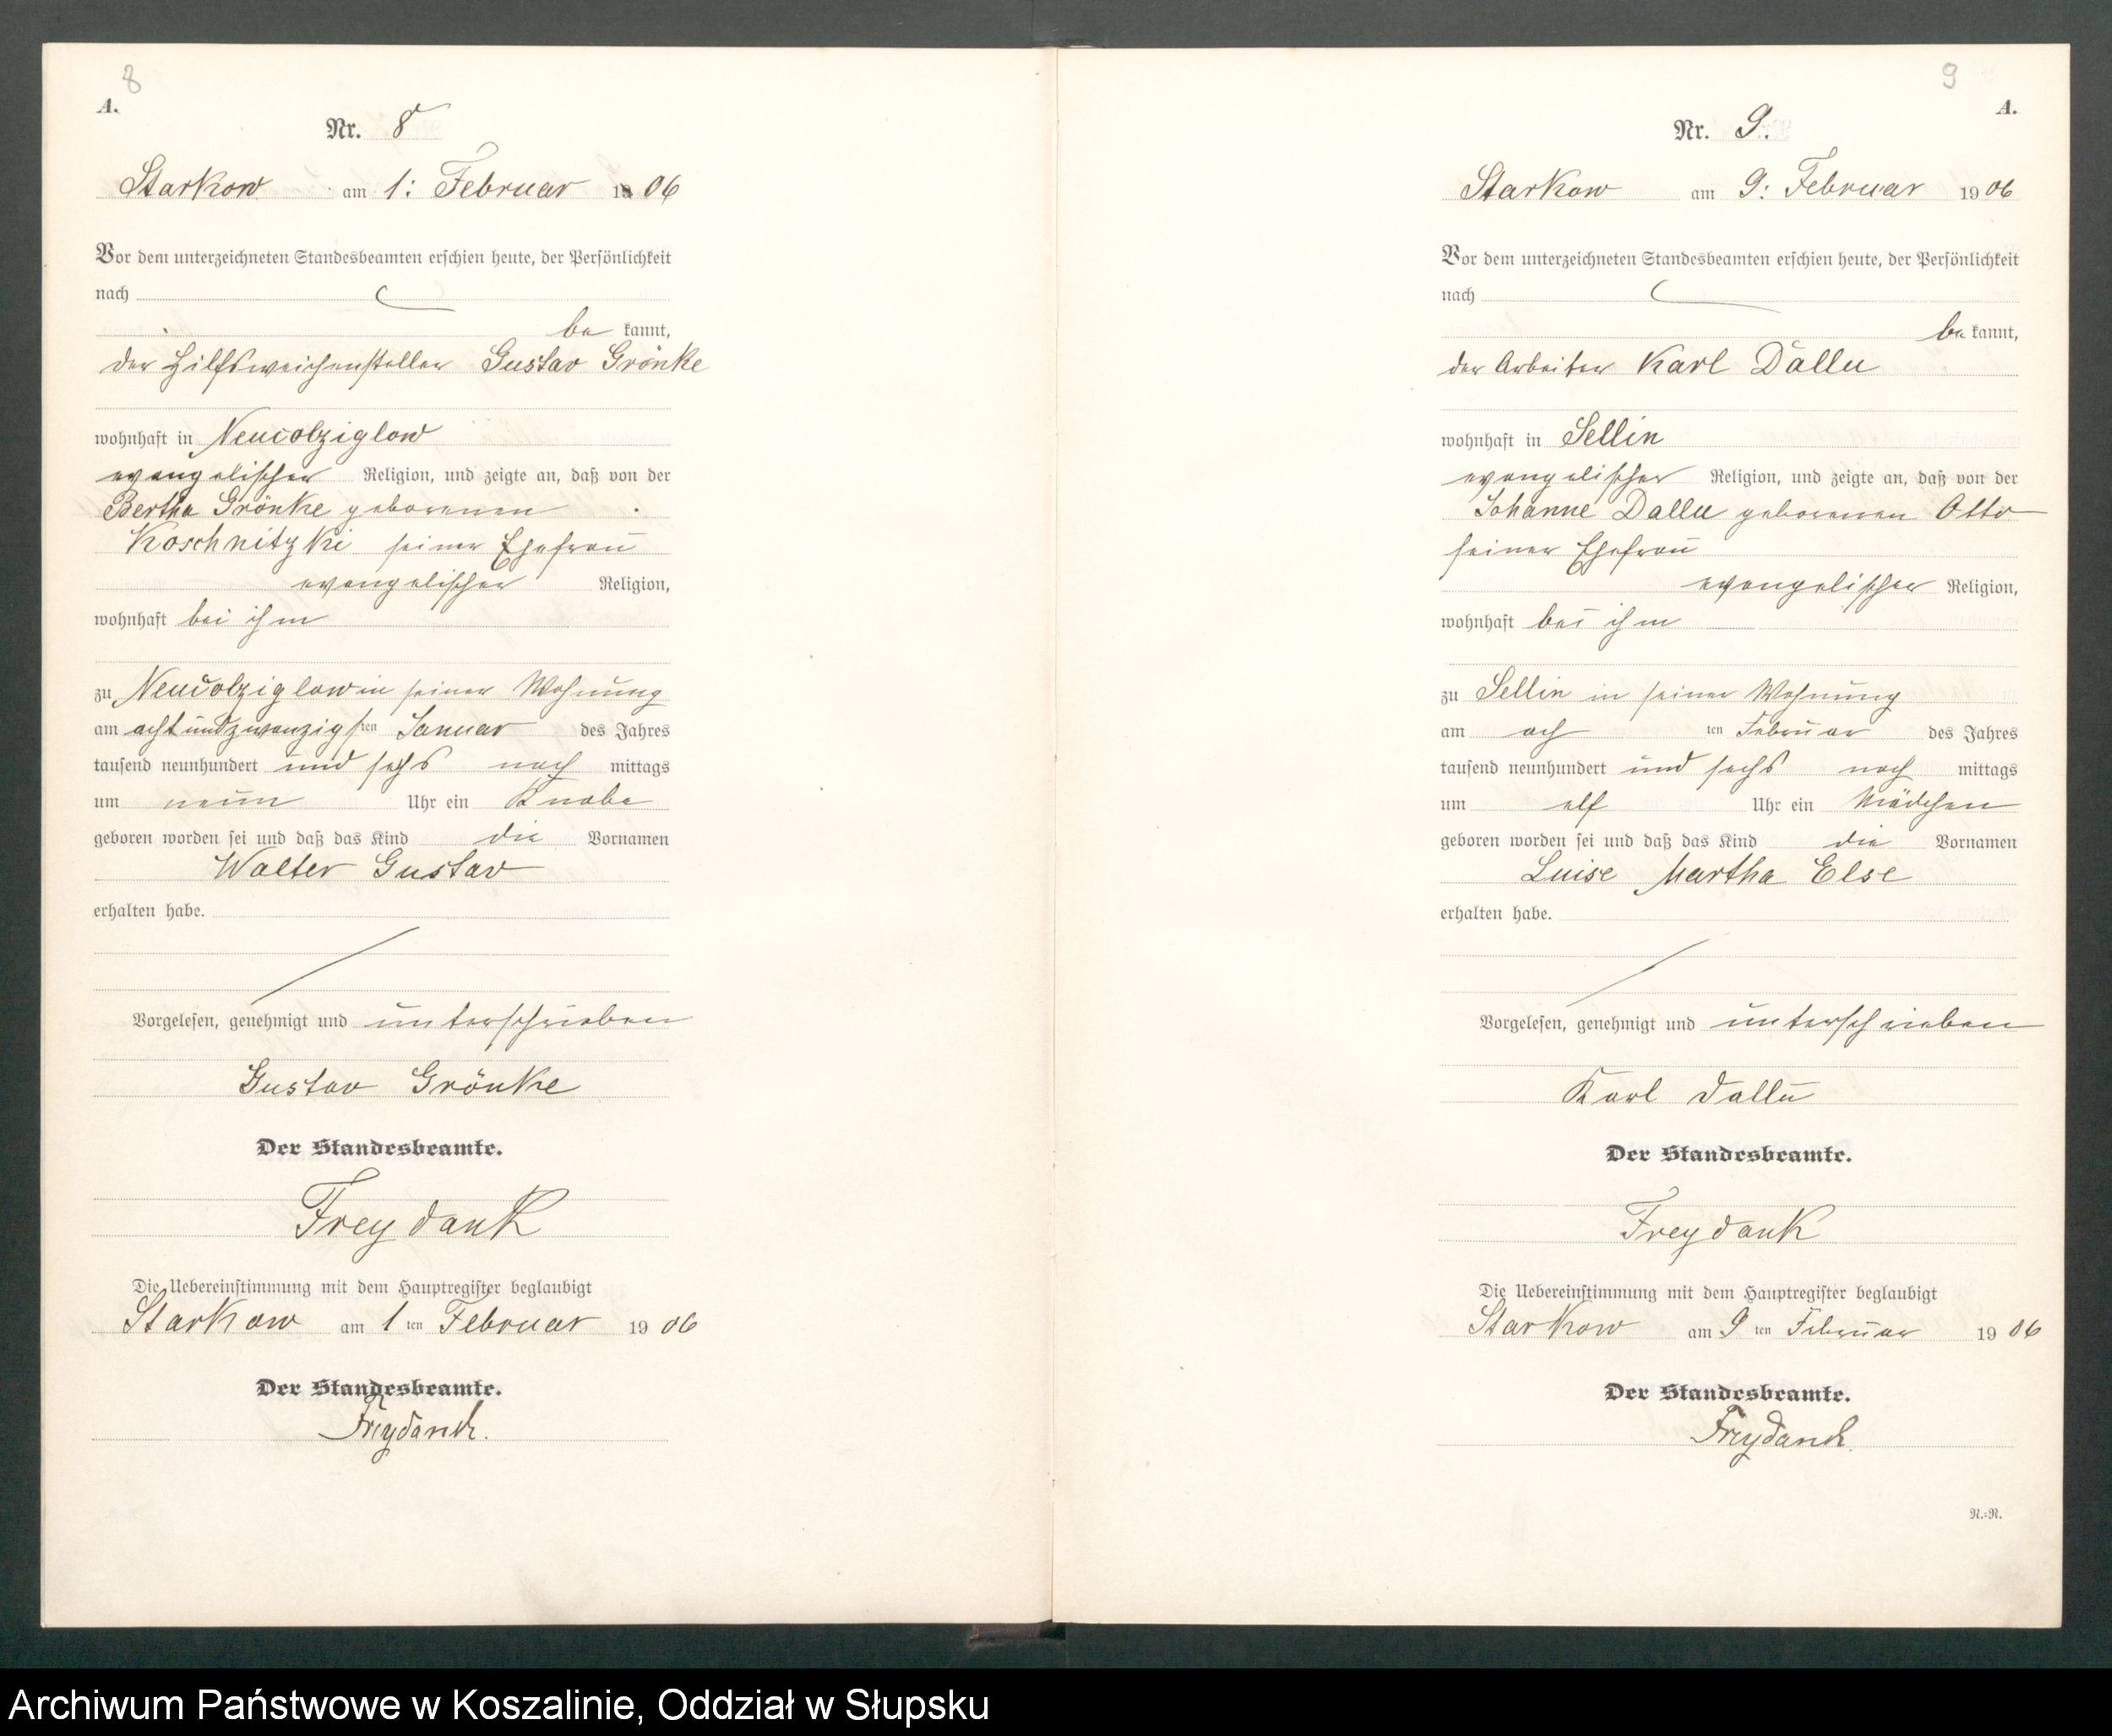 8
A.
Nr. 8
Starkow am 1: Februar 1906
Vor dem unterzeichneten Standesbeamten erschien heute, der Persönlichkeit
nach
be kannt,
der Hilfsweichensteller Gustav Grönke
wohnhaft in
evangelischer Religion, und zeigte an, daß von der
Bertha Grönke geborenen
Koschnitzki seiner Ehefrau
evangelischer Religion,
wohnhaft bei ihm
zu in seiner Wohnung
am achtundzwanzigsten Januar des Jahres
tausend neunhundert und sechs nach mittags
um neun Uhr ein Knabe
geboren worden sei und daß das Kind die Vornamen
Walter Gustav
erhalten habe.
Vorgelesen, genehmigt und unterschrieben
Gustav Grönke
Der Standesbeamte.
Freydank
Die Uebereinstimmung mit dem Hauptregister beglaubigt
Starkow am 1 ten Februar 1906
Der Standesbeamte.
Freydank.
9
A.
Nr. 9.
Starkow am 9: Februar 1906
Vor dem unterzeichneten Standesbeamten erschien heute, der Persönlichkeit
nach
be kannt,
der Arbeiter Karl Dallu
wohnhaft in Sellin
evangelischer Religion, und zeigte an, daß von der
Johanne Dallu geborenen Otto
seiner Ehefrau
evangelischer Religion,
wohnhaft bei ihm
zu Sellin in seiner Wohnung
am ach ten Februar des Jahres
tausend neunhundert und sechs nach mittags
um elf Uhr ein Mädchen
geboren worden sei und daß das Kind die Vornamen
Luise Martha Else
erhalten habe.
Vorgelesen, genehmigt und unterschrieben
Karl Dallu
Der Standesbeamte.
Freydank
Die Uebereinstimmung mit dem Hauptregister beglaubigt
Starkow am 9 ten Februar 1906
Der Standesbeamte.
Freydank.
N.=R.
Archiwum Państwowe w Koszalinie, Oddział w Słupsku